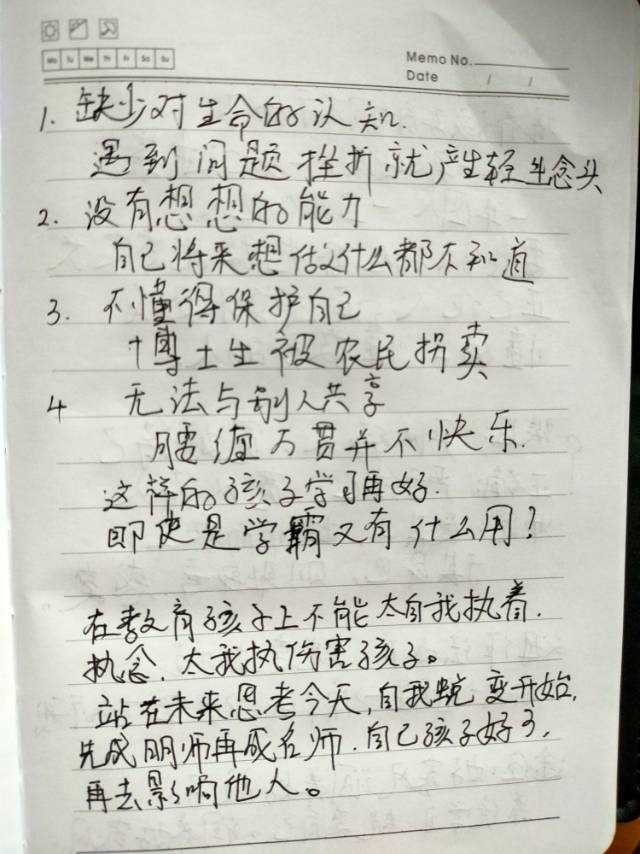 Mo Tu We Th Fr Sa Su
Memo No.
Date / /
1. 缺少对生命的认知.
遇到问题挫折就产生轻生念头
2. 没有想想的能力
自己将来想做什么都不知道
3. 不懂得保护自己
博士生被农民拐卖
4 无法与别人共享
腰缠万贯并不快乐.
这样的孩子学习再好.
即使是学霸又有什么用?
在教育孩子上不能太自我执着.
执念.太我执伤害孩子。
站在未来思考今天,自我蜕变开始,
先成明师再成名师.自己孩子好了,
再去影响他人。